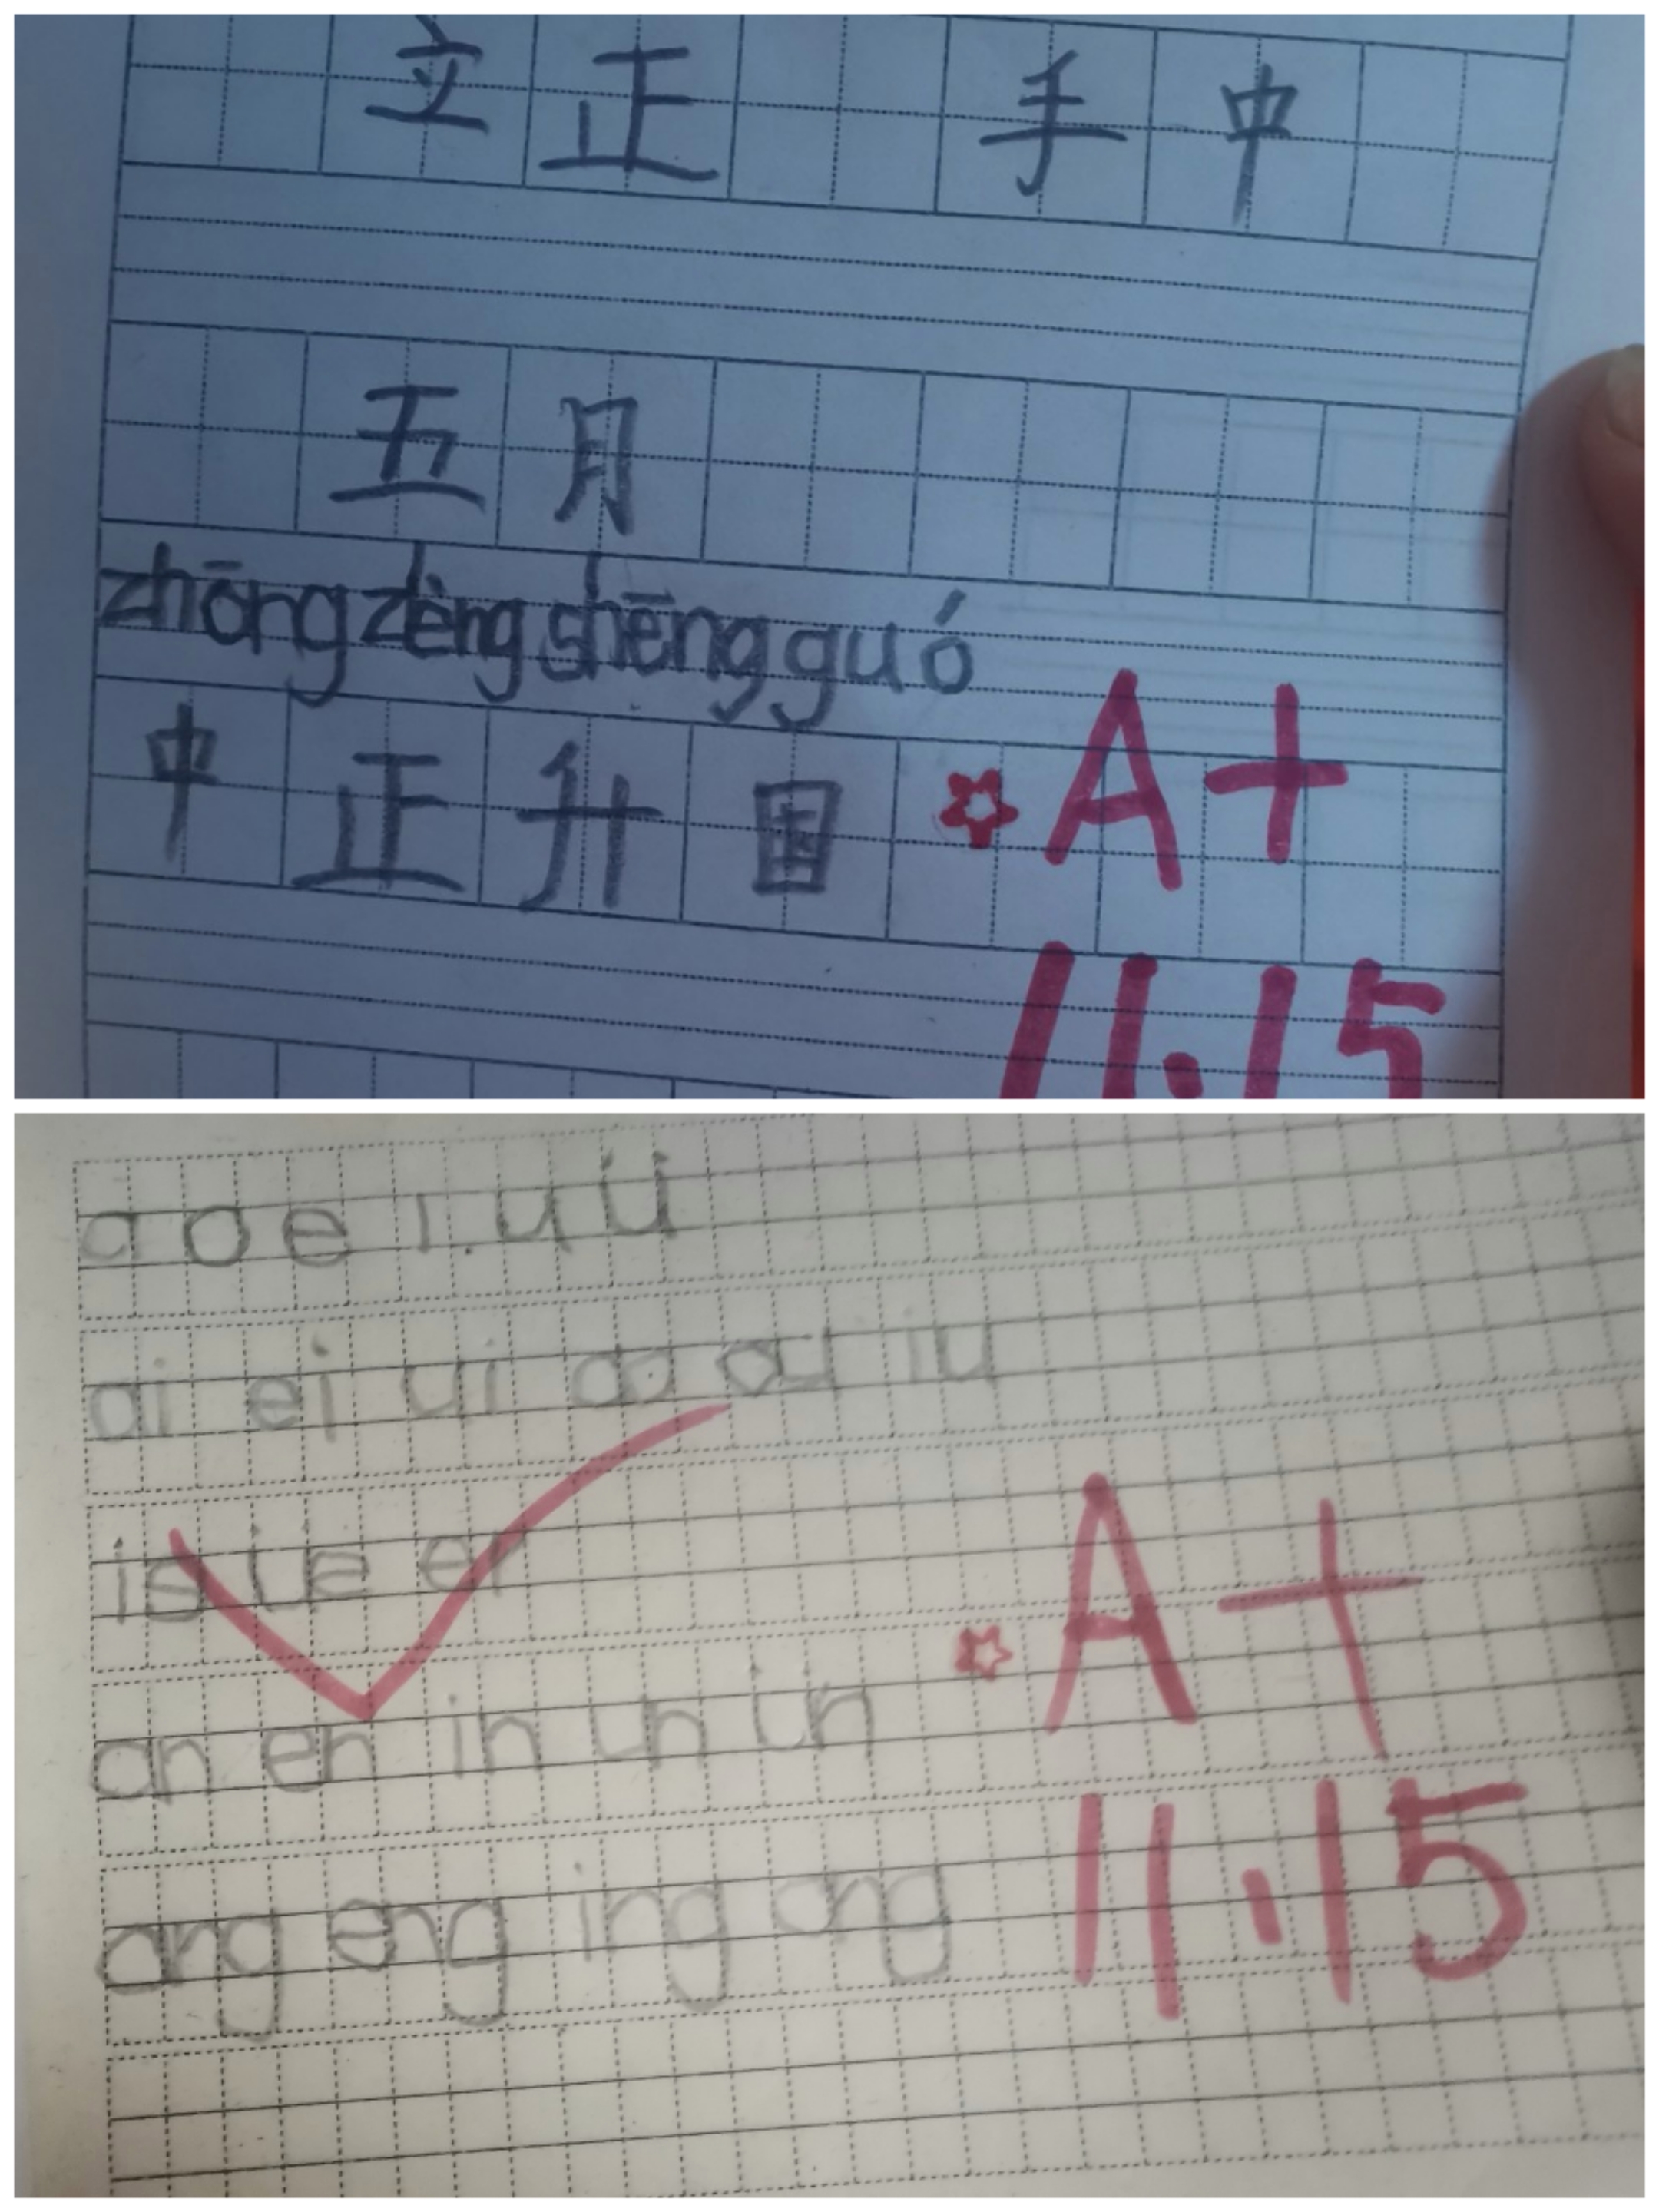 立 正 手 中
五 月
zhōng zhèng shēng guó
中 正 升 国
A+
11.15
a o e i u ü
ai ei ui ao ou iu
ie üe er
an en in un ün
A+
ang eng ing ong
11.15